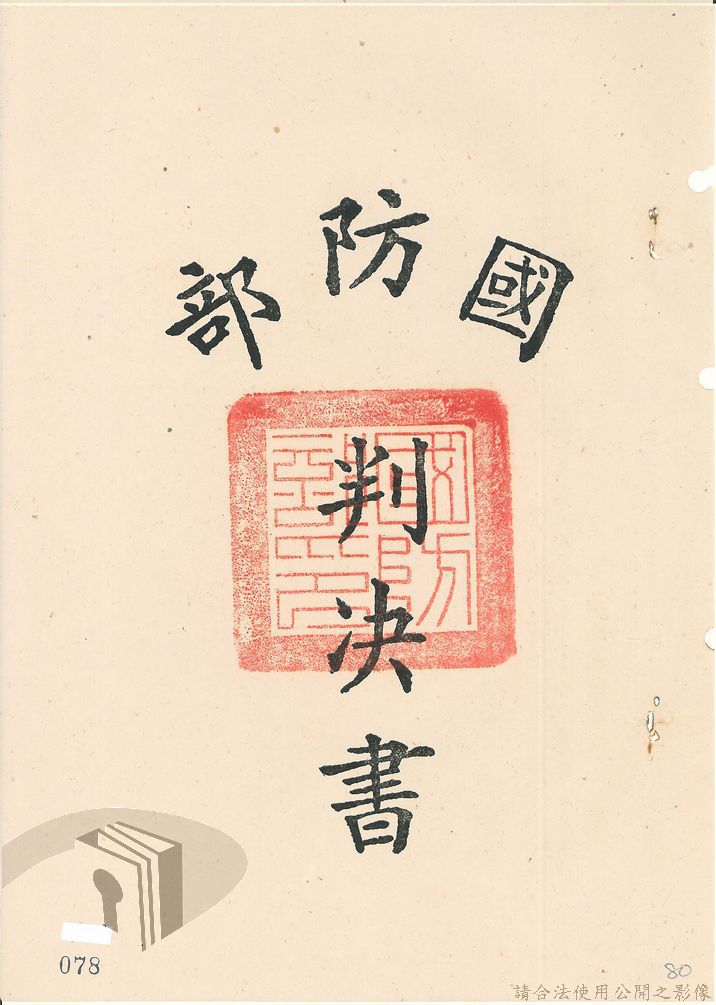 國防部
判決書
078
80
請合法使用公開之影像